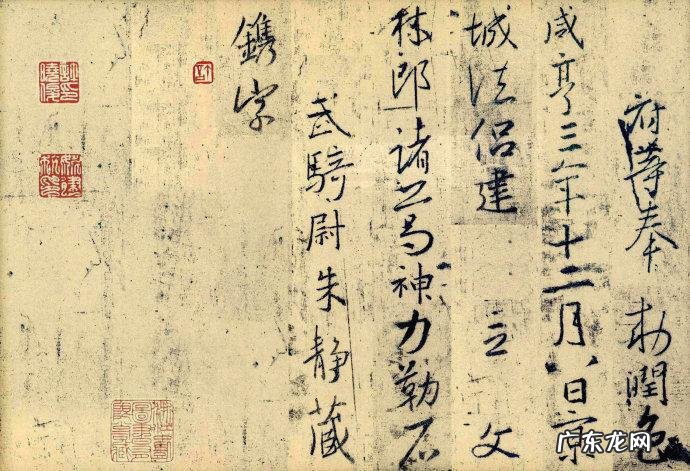 府等奉 勅潤色
咸亨三年十二月八日京
城法侶建 立 文
林郎諸葛神力勒石
武騎尉朱靜藏
鐫字
广东龙网